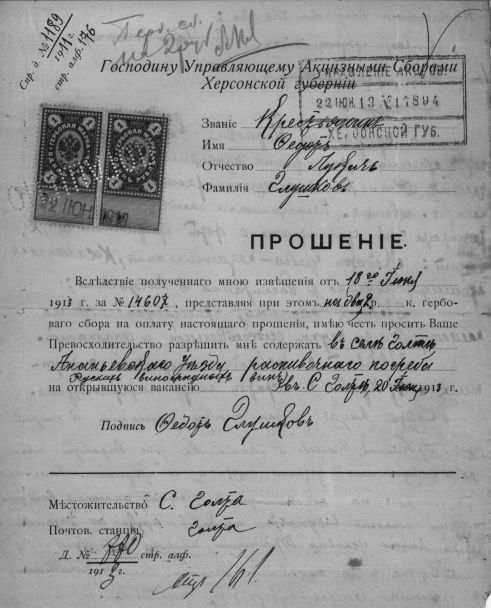 Спр. д. № 1189
1911 г.
стр. алф. 176
Господину Управляющему Акцизными Сборами
Херсонской губернiи
УПРАВЛЕНIЕ АКЦИЗН.
22 IЮН. 13 № 17894
ХЕРСОНСКОЙ ГУБ.
Званiе Крестьянинъ
Имя Ѳедоръ
Отчество
Фамилiя Глушковъ
1 ГЕРБОВАЯ МАРКА 1
1 ГЕРБОВАЯ МАРКА 1
22 IЮН
ПРОШЕНIЕ.
Вслѣдствiе полученнаго мною извѣщенiя отъ 18го Iюня
1913 г. за № 14607, представляя при этомъ два 2 р. к. гербо-
ваго сбора на оплату настоящаго прошенiя, имѣю честь просить Ваше
Превосходительство разрѣшить мнѣ содержать въ селѣ Голтѣ
Ананьевскаго Уѣзда распивочнаго погреба
Рускихъ виноградныхъ винъ
на открывшуюся вакансiю С Голта, 20 Iюня 1913 г.
Подпись Ѳедоръ Глушковъ
Мѣстожительство С. Голта
Почтов. станцiя Голта
Д. № стр. алф.
1913 г.
161